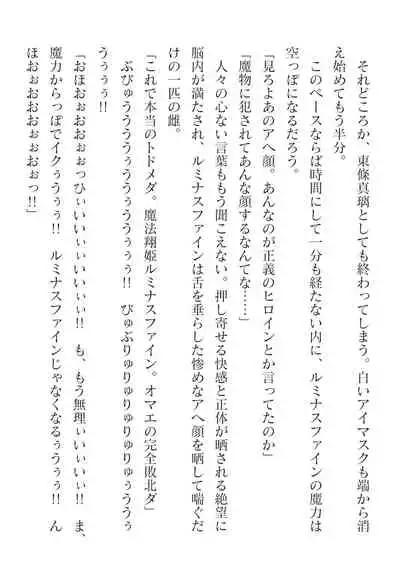 それどころか、東條真璃としても終わってしまう。白いアイマスクも端から消
え始めてもう半分。
このペースならば時間にして一分も経たない内に、ルミナスファインの魔力は
空っぽになるだろう。
「見ろよあのアヘ顔。あんなのが正義のヒロインとか言ってたのか」
「魔物に犯されてあんな顔するなんてな……」
人々の心ない言葉ももう聞こえない。押し寄せる快感と正体が晒される絶望に
脳内が満たされ、ルミナスファインは舌を垂らした惨めなアヘ顔を晒して喘ぐだ
けの一匹の雌。
「これで本当のトドメダ。魔法翔姫ルミナスファイン。オマエの完全敗北ダ」
ぶびゅうううぅううぅううぅぅ!! びゅぶりゅりゅりゅりゅうううぅ
うぅぅぅ!!
「おほおぉおおぉぉっひぃいいぃいいいぃぃ!! も、もう無理ぃいぃいぃ!! ま、
魔力からっぽでイクぅうぅぅ!! ルミナスファインじゃなくなるぅうぅぅ!! ん
ほおぉおおおおぉぉおぉっ!!」